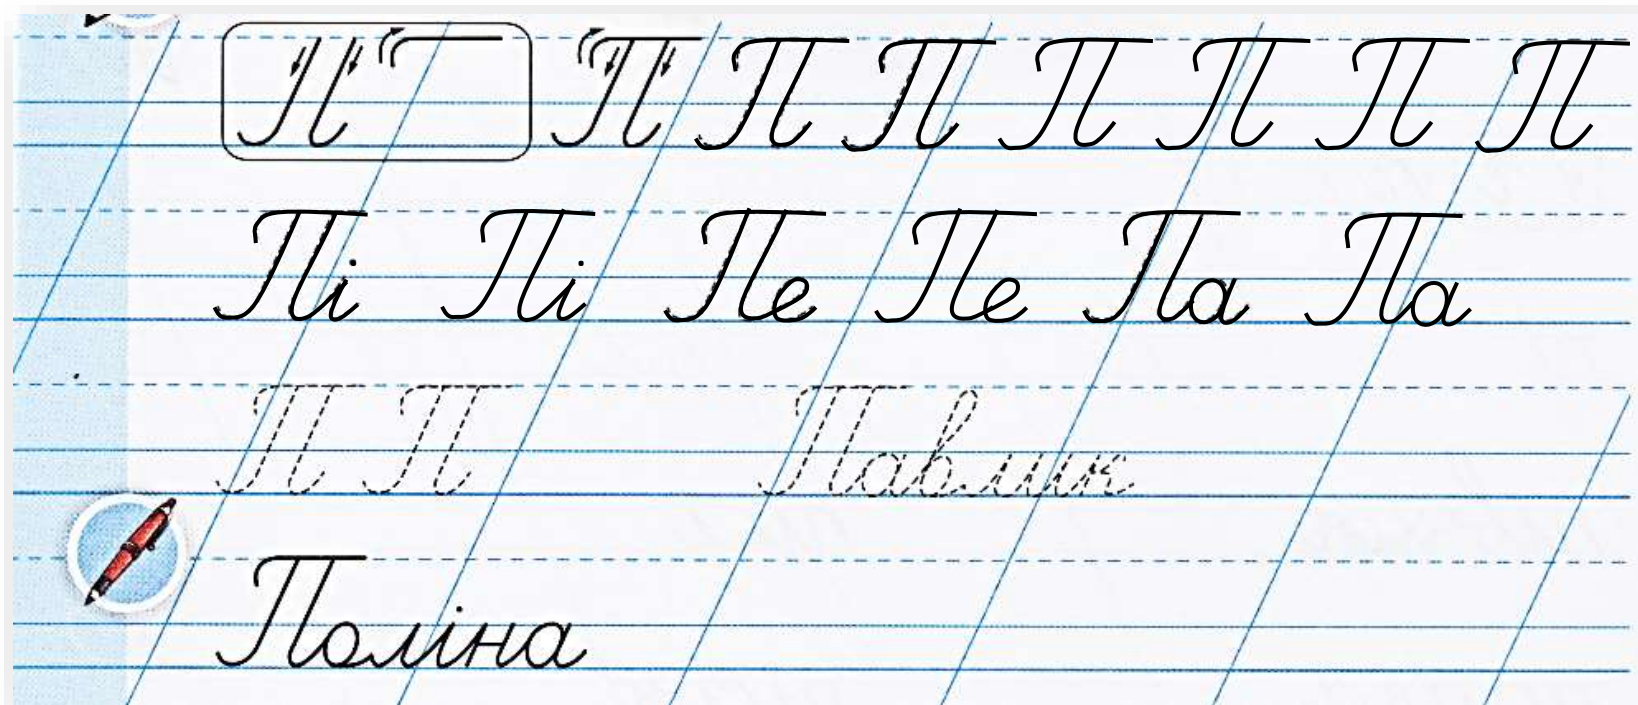 П П П П П П П П
Пі Пі Пе Пе Па Па
П П Павлик
Поліна